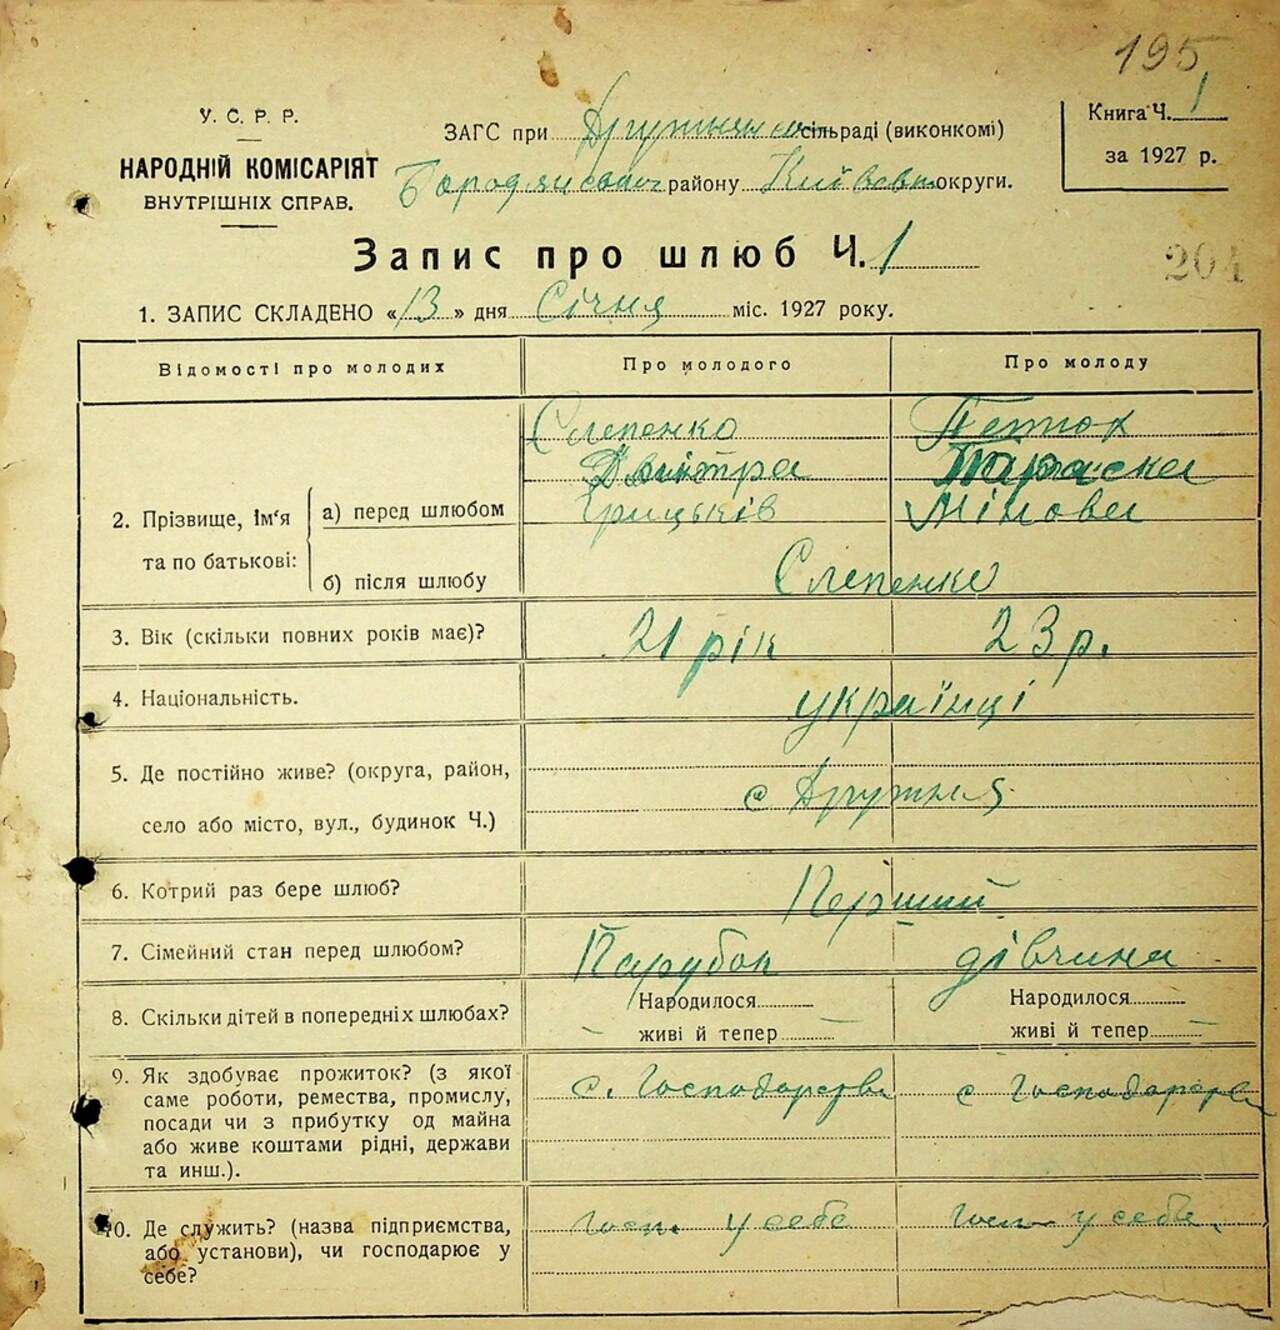 195
У. С. Р. Р.
НАРОДНІЙ КОМІСАРІЯТ
ВНУТРІШНІХ СПРАВ.
ЗАГС при Дружнянськ сільраді (виконкомі)
Бородянськ району Київськ округи.
Книга Ч. 1
за 1927 р.
Запис про шлюб Ч. 1
204
1. ЗАПИС СКЛАДЕНО «13» дня Січня міс. 1927 року.
Відомості про молодих
Про молодого
Про молоду
2. Прізвище, ім'я
та по батькові:
а) перед шлюбом
Слепенко
Дмітра
Грицьків
Петюх
Параска
Мінова
б) після шлюбу
Слепенко
3. Вік (скільки повних років має)?
21 рік
23 р.
4. Національність.
українці
5. Де постійно живе? (округа, район,
село або місто, вул., будинок Ч.)
с Дружня
6. Котрий раз бере шлюб?
Перший
7. Сімейний стан перед шлюбом?
Парубок
дівчина
8. Скільки дітей в попередніх шлюбах?
Народилося
живі й тепер
Народилося
живі й тепер
9. Як здобуває прожиток? (з якої
саме роботи, ремества, промислу,
посади чи з прибутку од майна
або живе коштами рідні, держави
та инш.).
с. Господарства
с Господарства
10. Де служить? (назва підприємства,
або установи), чи господарює у
себе?
Госп. у себе
Госп у себе